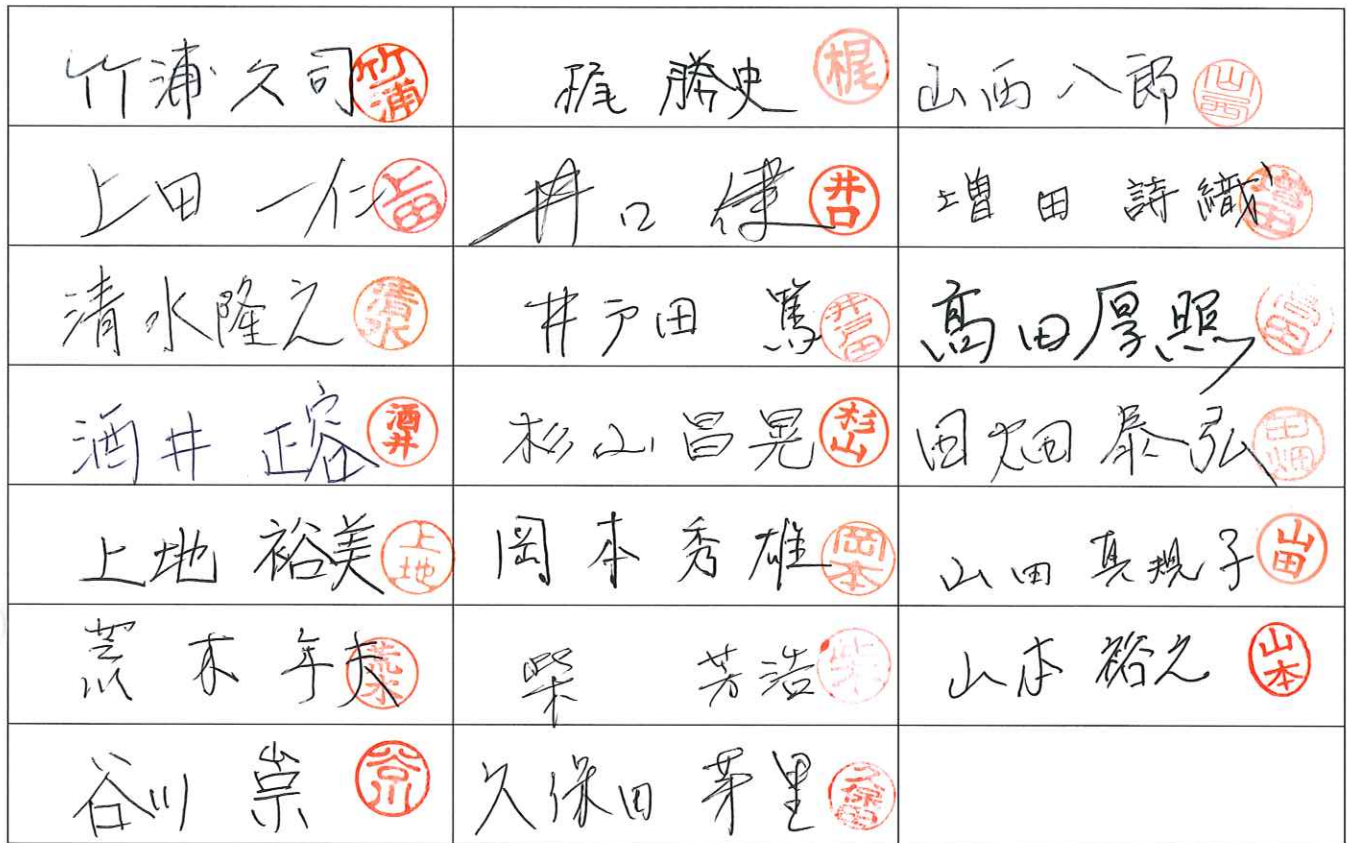 竹浦久司 竹浦 梶 勝史 梶 山西八郎 山西
上田 一仁 上田 井口 健 井口 増田 詩織 増田
清水隆之 清水 井戸田 篤 井戸田 髙田厚照 髙田
酒井 正容 酒井 杉山昌晃 杉山 田畑泰弘 田畑
上地 裕美 上地 岡本秀雄 岡本 山田 真規子 山田
荒木年夫 荒木 柴 芳浩 柴 山本裕之 山本
谷川 崇 谷川 久保田 芽里 久保田